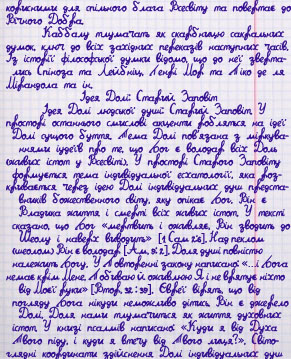 корисними для спільного блага Всесвіту та повертає до
Вічного Добра.
Каббалу тлумачать як скарбницю сакральних
думок, ключ до всіх західних переказів наступних часів.
Із історії філософської думки відомо, що до неї зверта-
лись Спіноза та Лейбніц, Генрі Мор та Піко де ля
Мірандола та ін.
Ідея Долі: Старий Заповіт
Ідея Долі людської душі: Старий Заповіт. У
просторі останнього смислові акценти робляться на ідеї
Долі сущого буття. Тема Долі пов'язана з міркува-
ннями іудеїв про те, що Бог є володар всіх Доль
живих істот у Всесвіті. У просторі Старого Заповіту
формується тема індивідуальної есхатології, яка роз-
кривається через ідею Долі індивідуальних душ предста-
вників божественного світу, яку опікає Бог. Він є
Владика життя і смерті всіх живих істот. У тексті
сказано, що Бог «мертвить і оживляє, Він зводить до
Шеолу і наверх виводить» [1 Сам 2:6]. Над пеклом
шеолом Він є володар [Ам, 9:2]. Доля душі повністю
належить Богу. У Повторенні закону написано «...і Бога
немає крім Мене. Побиваю й оживляю Я і не врятує ніхто
від Моєї руки» [Втор, 32:39]. Євреї вірять, що від
погляду Бога нікуди неможливо дітись. Він є джерело
Долі. Доля нами тлумачиться як життя духовних
істот. У книзі псалмів написано «Куди я від Духа
Твого піду, і куди я втечу від Твого лиця?». Світо-
глядні координати здійснення Долі індивідуальних душ